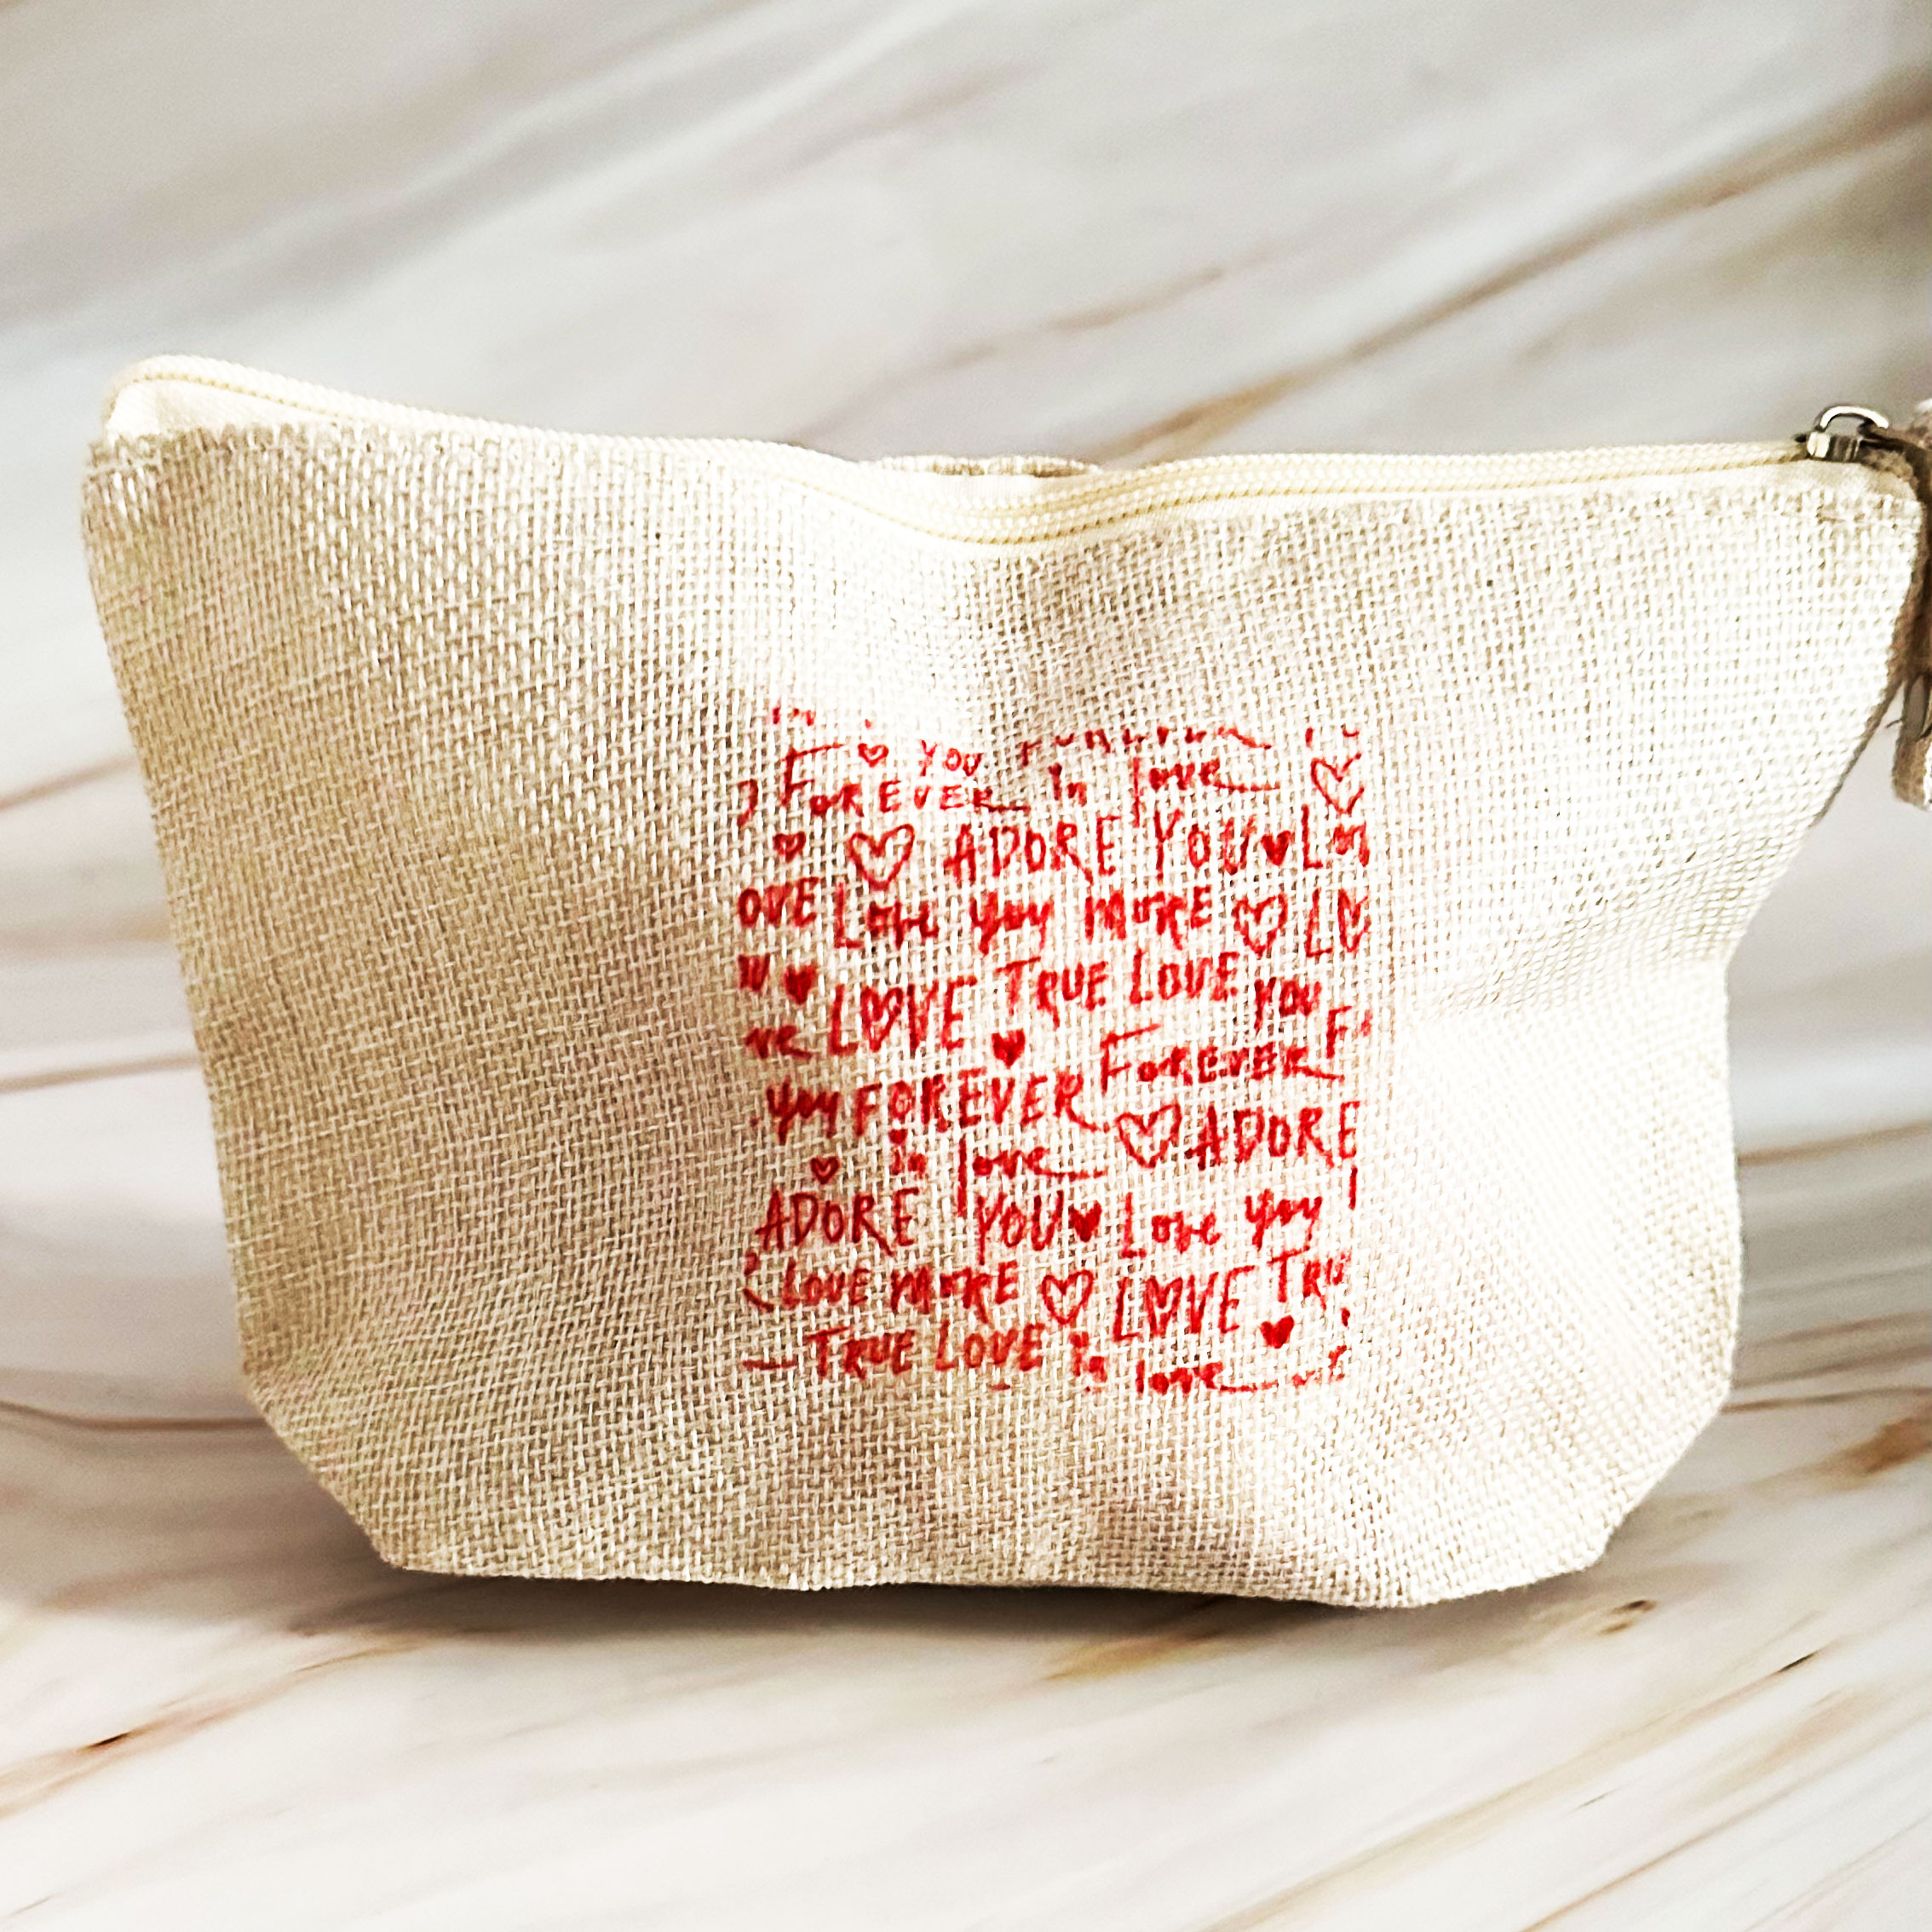 YOU
FOREVER in love
ADORE YOU
OVE Love you MORE
LOVE TRUE LOVE YOU
ve FOREVER
you FOREVER
in love ADORE
ADORE YOU Love you
LOVE MORE LOVE TRU
TRUE LOVE in love